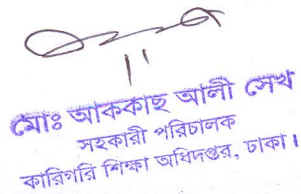 মোঃ আককাছ আলী সেখ
সহকারী পরিচালক
কারিগরি শিক্ষা অধিদপ্তর, ঢাকা।